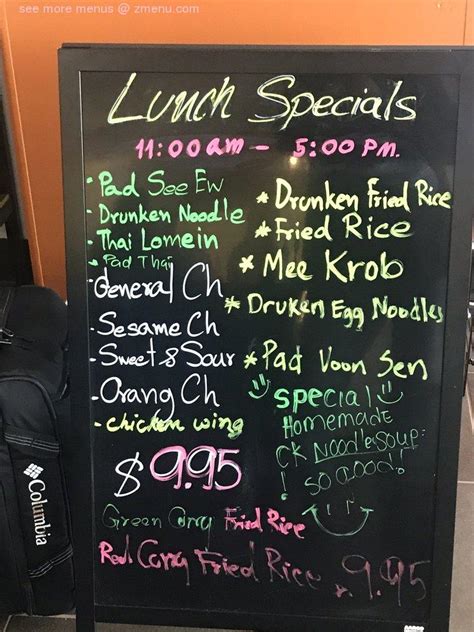 see more menus @ zmenu.com
Lunch Specials
11:00am - 5:00 PM.
• Pad See Ew
• Drunken Noodle
• Thai Lomein
* Pad Thai
General Ch
- Sesame Ch
- Sweet & Sour
- Orang Ch
- chicken wing
$9.95
* Drunken Fried Rice
* Fried Rice
* Mee Krob
* Druken Egg Noodles
* Pad Voon Sen
Special
Homemade
CK Noodle Soup:
! so good!!
Green Curry Fried Rice
Red Curry Fried Rice 9.95
Columbia